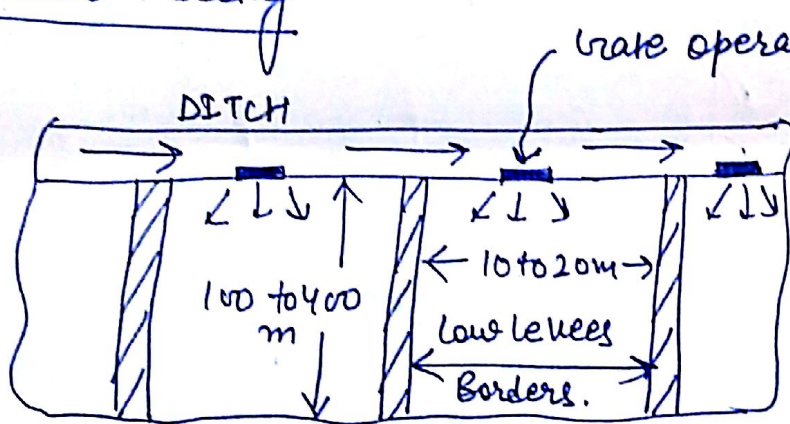 Gate opera
DITCH
100 to 400
m
10 to 20m
Low levees
Borders.